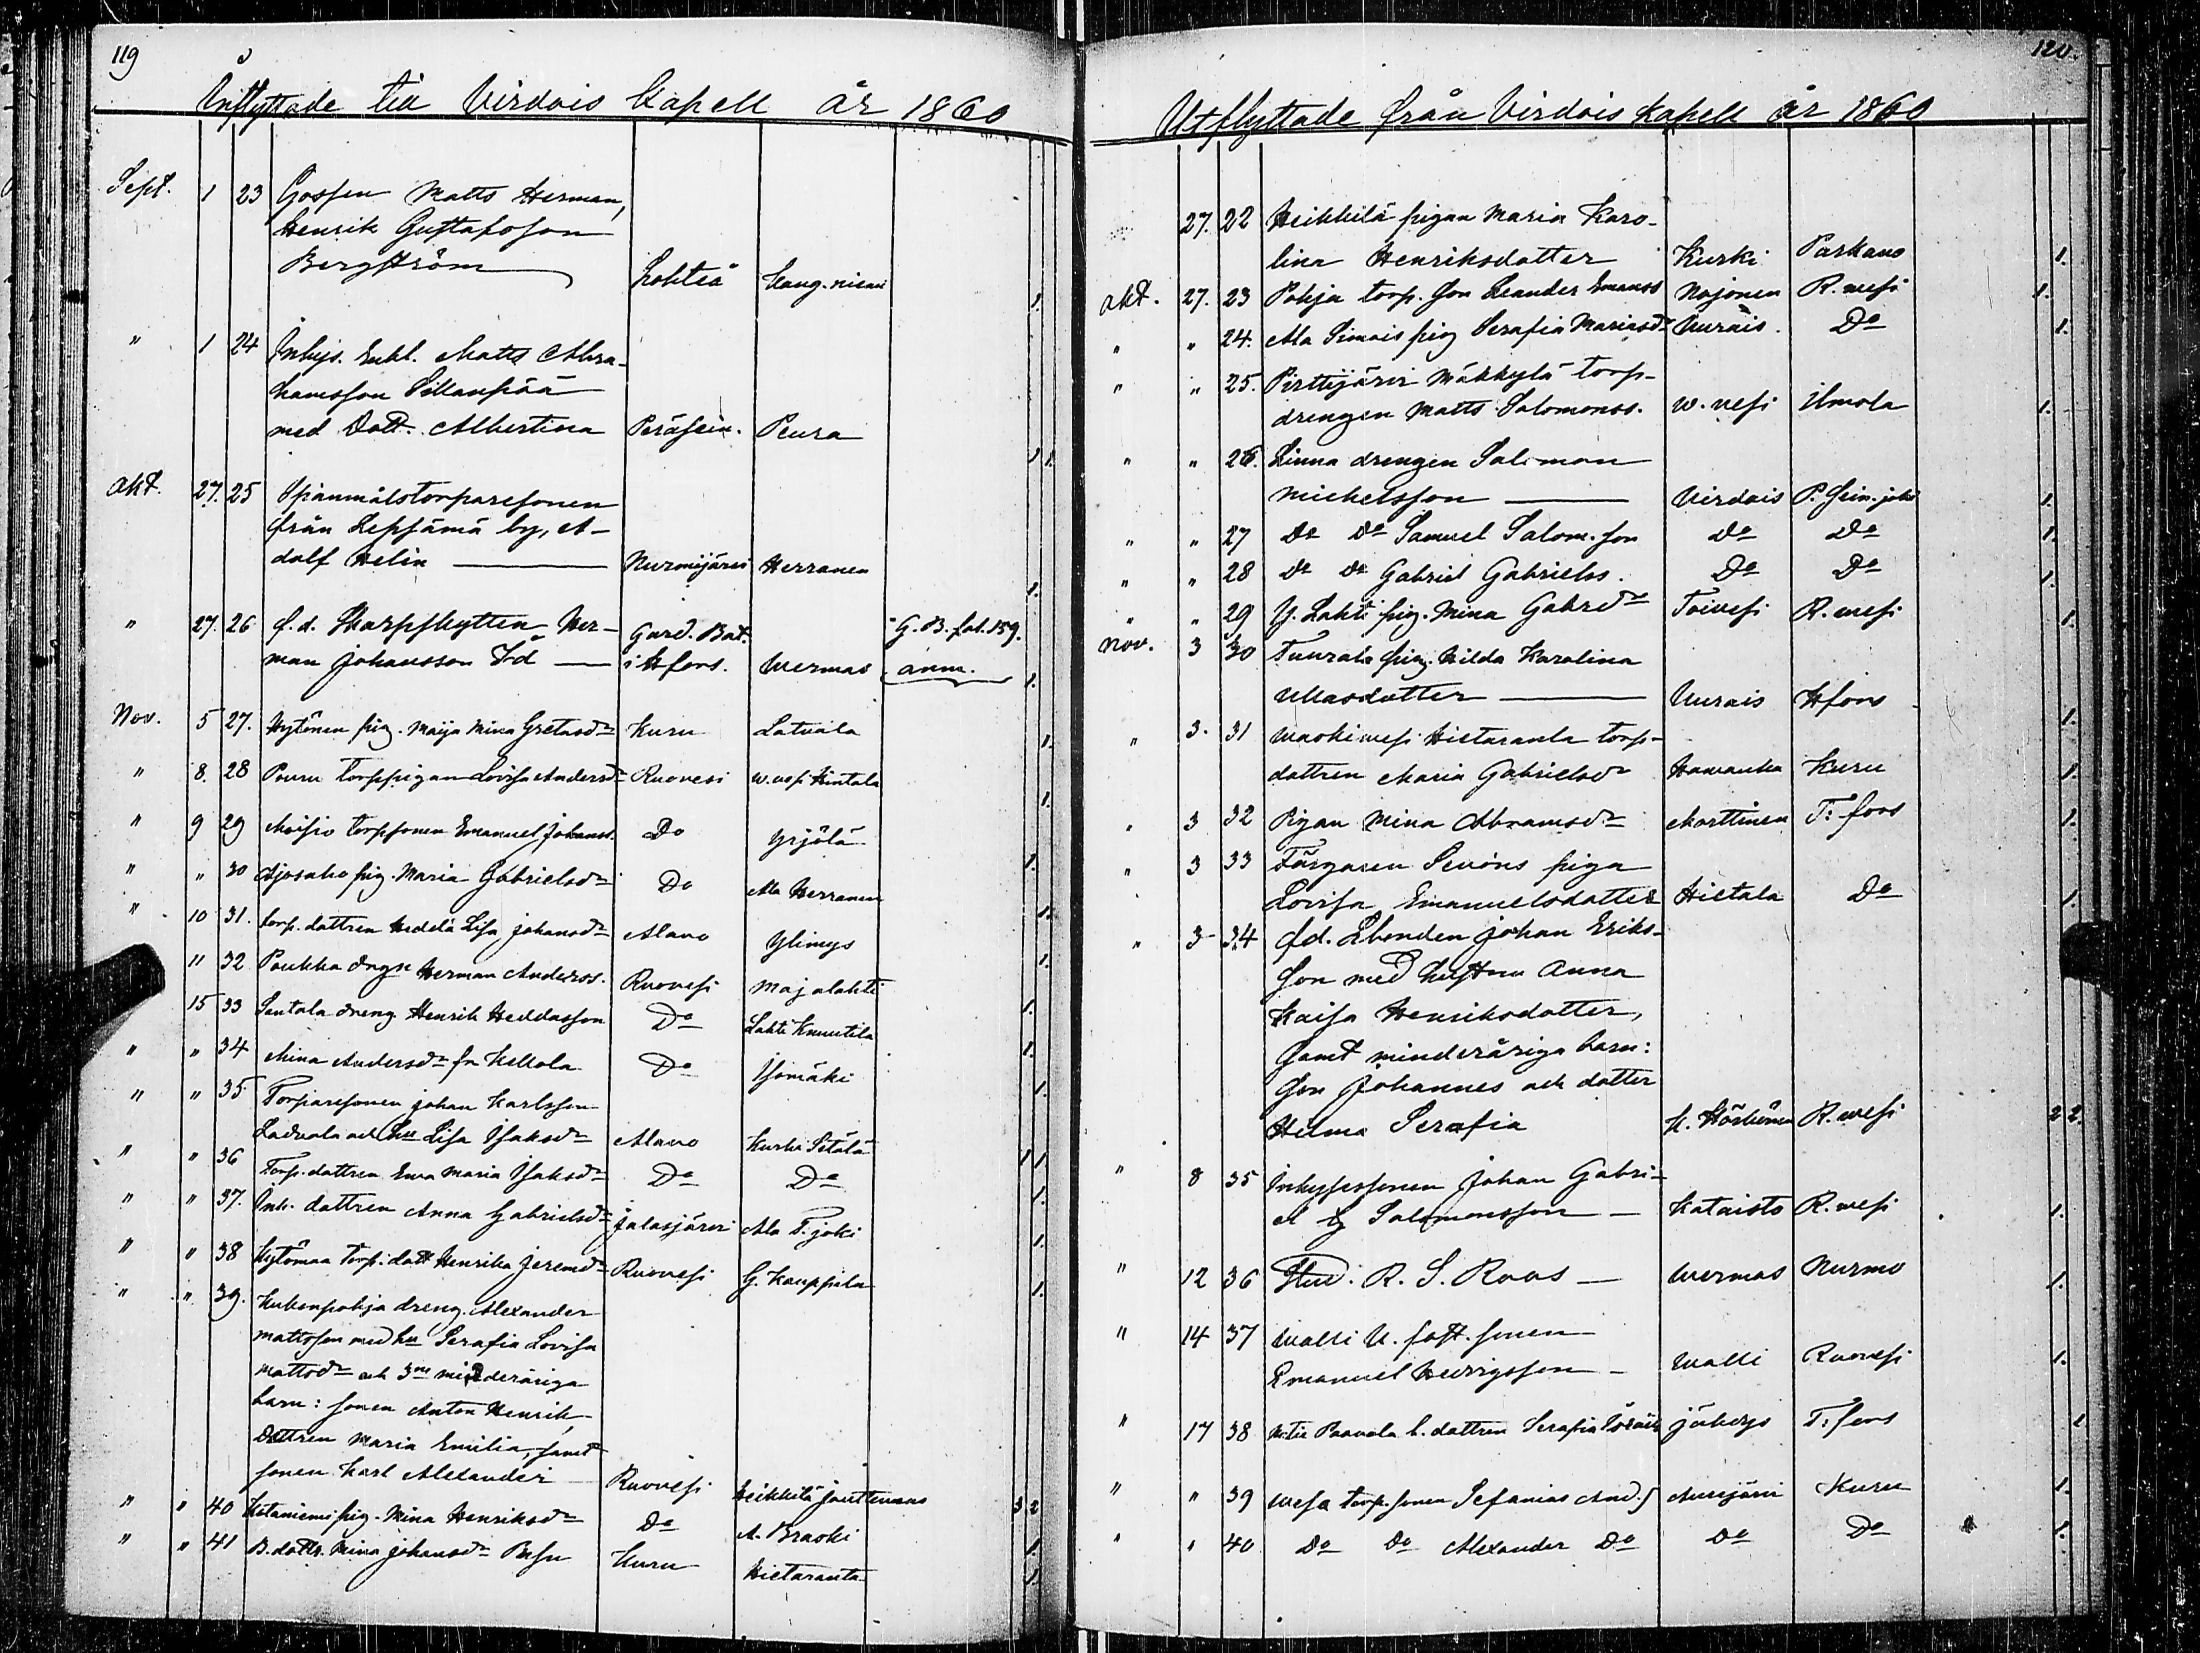 119
Inflyttade till Virdois Capell år 1860
Sept. 1 23 Gossen Matts Herman,
Henrik Gustafsson
Bergström Lohteå Haug.niemi 1.
" 1 24 Inhys. Enkl. Matts Abra-
hamsson Sillanpää
med Dott. Albertina Peräsein. Peura 1 1.
Okt. 27. 25 Spänmålstorparesonen
från Lepsämä by, A-
dolf Helin Nurmijärvi Herranen 1.
" 27. 26 f.d. Skarpskytten Her- Gard. Bat. G.B. fol. 159.
man Johansson i Hfors. Wermas anm. 1.
Nov. 5 27. Hytönen pig. Maija Mina Gretasdr Kuru Latvala 1.
" 8. 28 Pouru torppigan Lovisa Andersdr Ruovesi W.vesi Hintala 1.
" 9 29 Moisio torpsonen Emanuel Johanss. Do Yrjölä 1.
" " 30 Ajosaho pig. Maria Gabrielsdr Do Ala Herranen 1.
" 10 31. torp. dottren Hedda Lisa Johansdr Alavo Ylimys 1.
11 32 Poukka drgn Herman Anderss. Ruovesi Majalahti 1.
15 33 Sentala dreng Henrik Heddasson Do Lahti Knuutila 1.
" " 34 Mina Andersdr fr Kellola Do Isomäki 1.
" " 35 Torparesonen Johan Karlsson
Ladvala och hu Lisa Isaksdr Alavo Kurki Sätälä 1 1.
" " 36 Torp. dottren Eva Maria Isaksdr Do Do 1.
" " 37. Inh. dottren Anna Gabrielsdr Jalasjärvi Ala T.joki 1.
" " 38 Kytömaa torp. dott Henrika Jeremdr Ruovesi G. Kauppila 1.
" " 39. Kukonpohja dreng. Alexander
Mattsson med hu Serafia Lovisa
Mattsdr och 3ne minderåriga
barn: sonen Anton Henrik,
Dottren Maria Emilia, samt
sonen Karl Alexander Ruovesi Heikkilä 3 2
" " 40 Kotaniemi pig. Mina Henriksdr Do A. Braski 1.
" " 41 B. dottr. Mina Johansdr Kuru Hietaranta 1.
120.
Utflyttade från Virdois Kapell år 1860
27. 22 Heikkilä pigan Maria Karo-
lina Henriksdotter Kurki Parkano 1.
Okt. 27. 23 Pohja torp. son Leander Emanss Nojonen R.wesi 1.
" " 24. Ala Simois pig Serafia Mariasdr Uurais. Do 1.
" " 25. Pirttijärvi Mäkkylä torp-
drengen Matts Salomonss. W.vesi Ilmola 1.
" " 26. Linna drengen Salomon
Michelsson Virdois P. Sein.joki 1.
" " 27 Do Do Samuel Salom.son Do Do 1.
" " 28 Do Do Gabriel Gabrielss. Do Do 1.
" " 29 Y. Lahti pig. Mina Gabrsdr Toivesi R.wesi 1.
Nov. 3 30 Tuurala pig. Hilda Karolina
Ullasdotter Uurais Hfors 1.
" 3. 31 Waskiwesi Hietaranta torp-
dottren Maria Gabrielsdr Hawanka Kuru 1.
" 3 32 Pigan Mina Abramsdr Marttinen T:fors 1.
" 3 33 Färgaren Sevóns piga
Lovisa Emanuelsdotter Hietala Do 1.
" 3 34 fd. Lbonden Johan Eriks-
son med hustru Anna
Kaisa Henriksdotter,
samt minderåriga barn:
son Johannes och dotter
Helma Serafia K. Köykönen R.wesi 2 2.
" 8 35 Inhysessonen Johan Gabri-
el Salomonsson Kataisto R.wesi 1.
" 12 36 Stud. R. S. Roos Wermas Nurmo 1.
" 14 37 Walli U. fost. sonen
Emanuel Hedvigsson Walli Ruovesi 1.
" 17 38 Paavola b. dottren Serafia Jähdys T:fors 1
" " 39 Wesa torp. sonen Sefanias And.s Aurejärvi Kuru 1.
" " 40 Do Do Alexander Do Do Do 1.